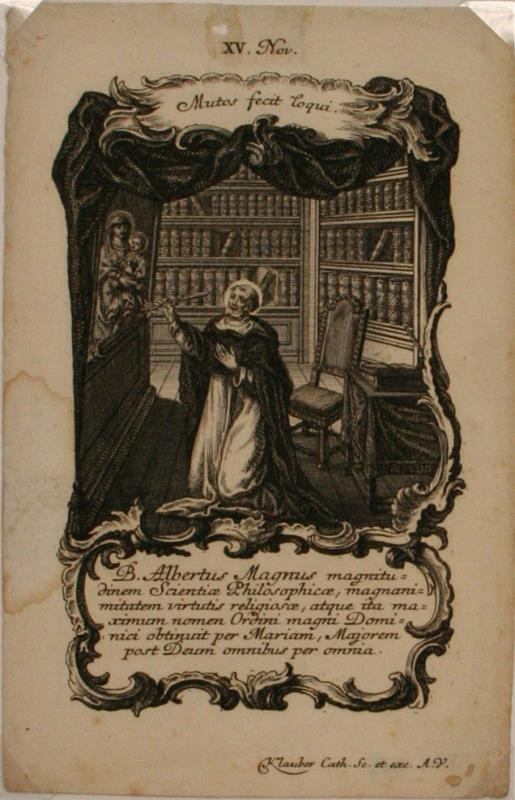 XV. Nov.
Mutos fecit loqui.
B. Albertus Magnus magnitu=
dinem Scientiæ Philosophicæ, magnani=
mitatem virtutis religiosæ, atque ita ma=
ximum nomen Ordini magni Domi=
nici obtinuit per Mariam, Majorem
post Deum omnibus per omnia.
Klauber Cath. Sc. et exc. A.V.